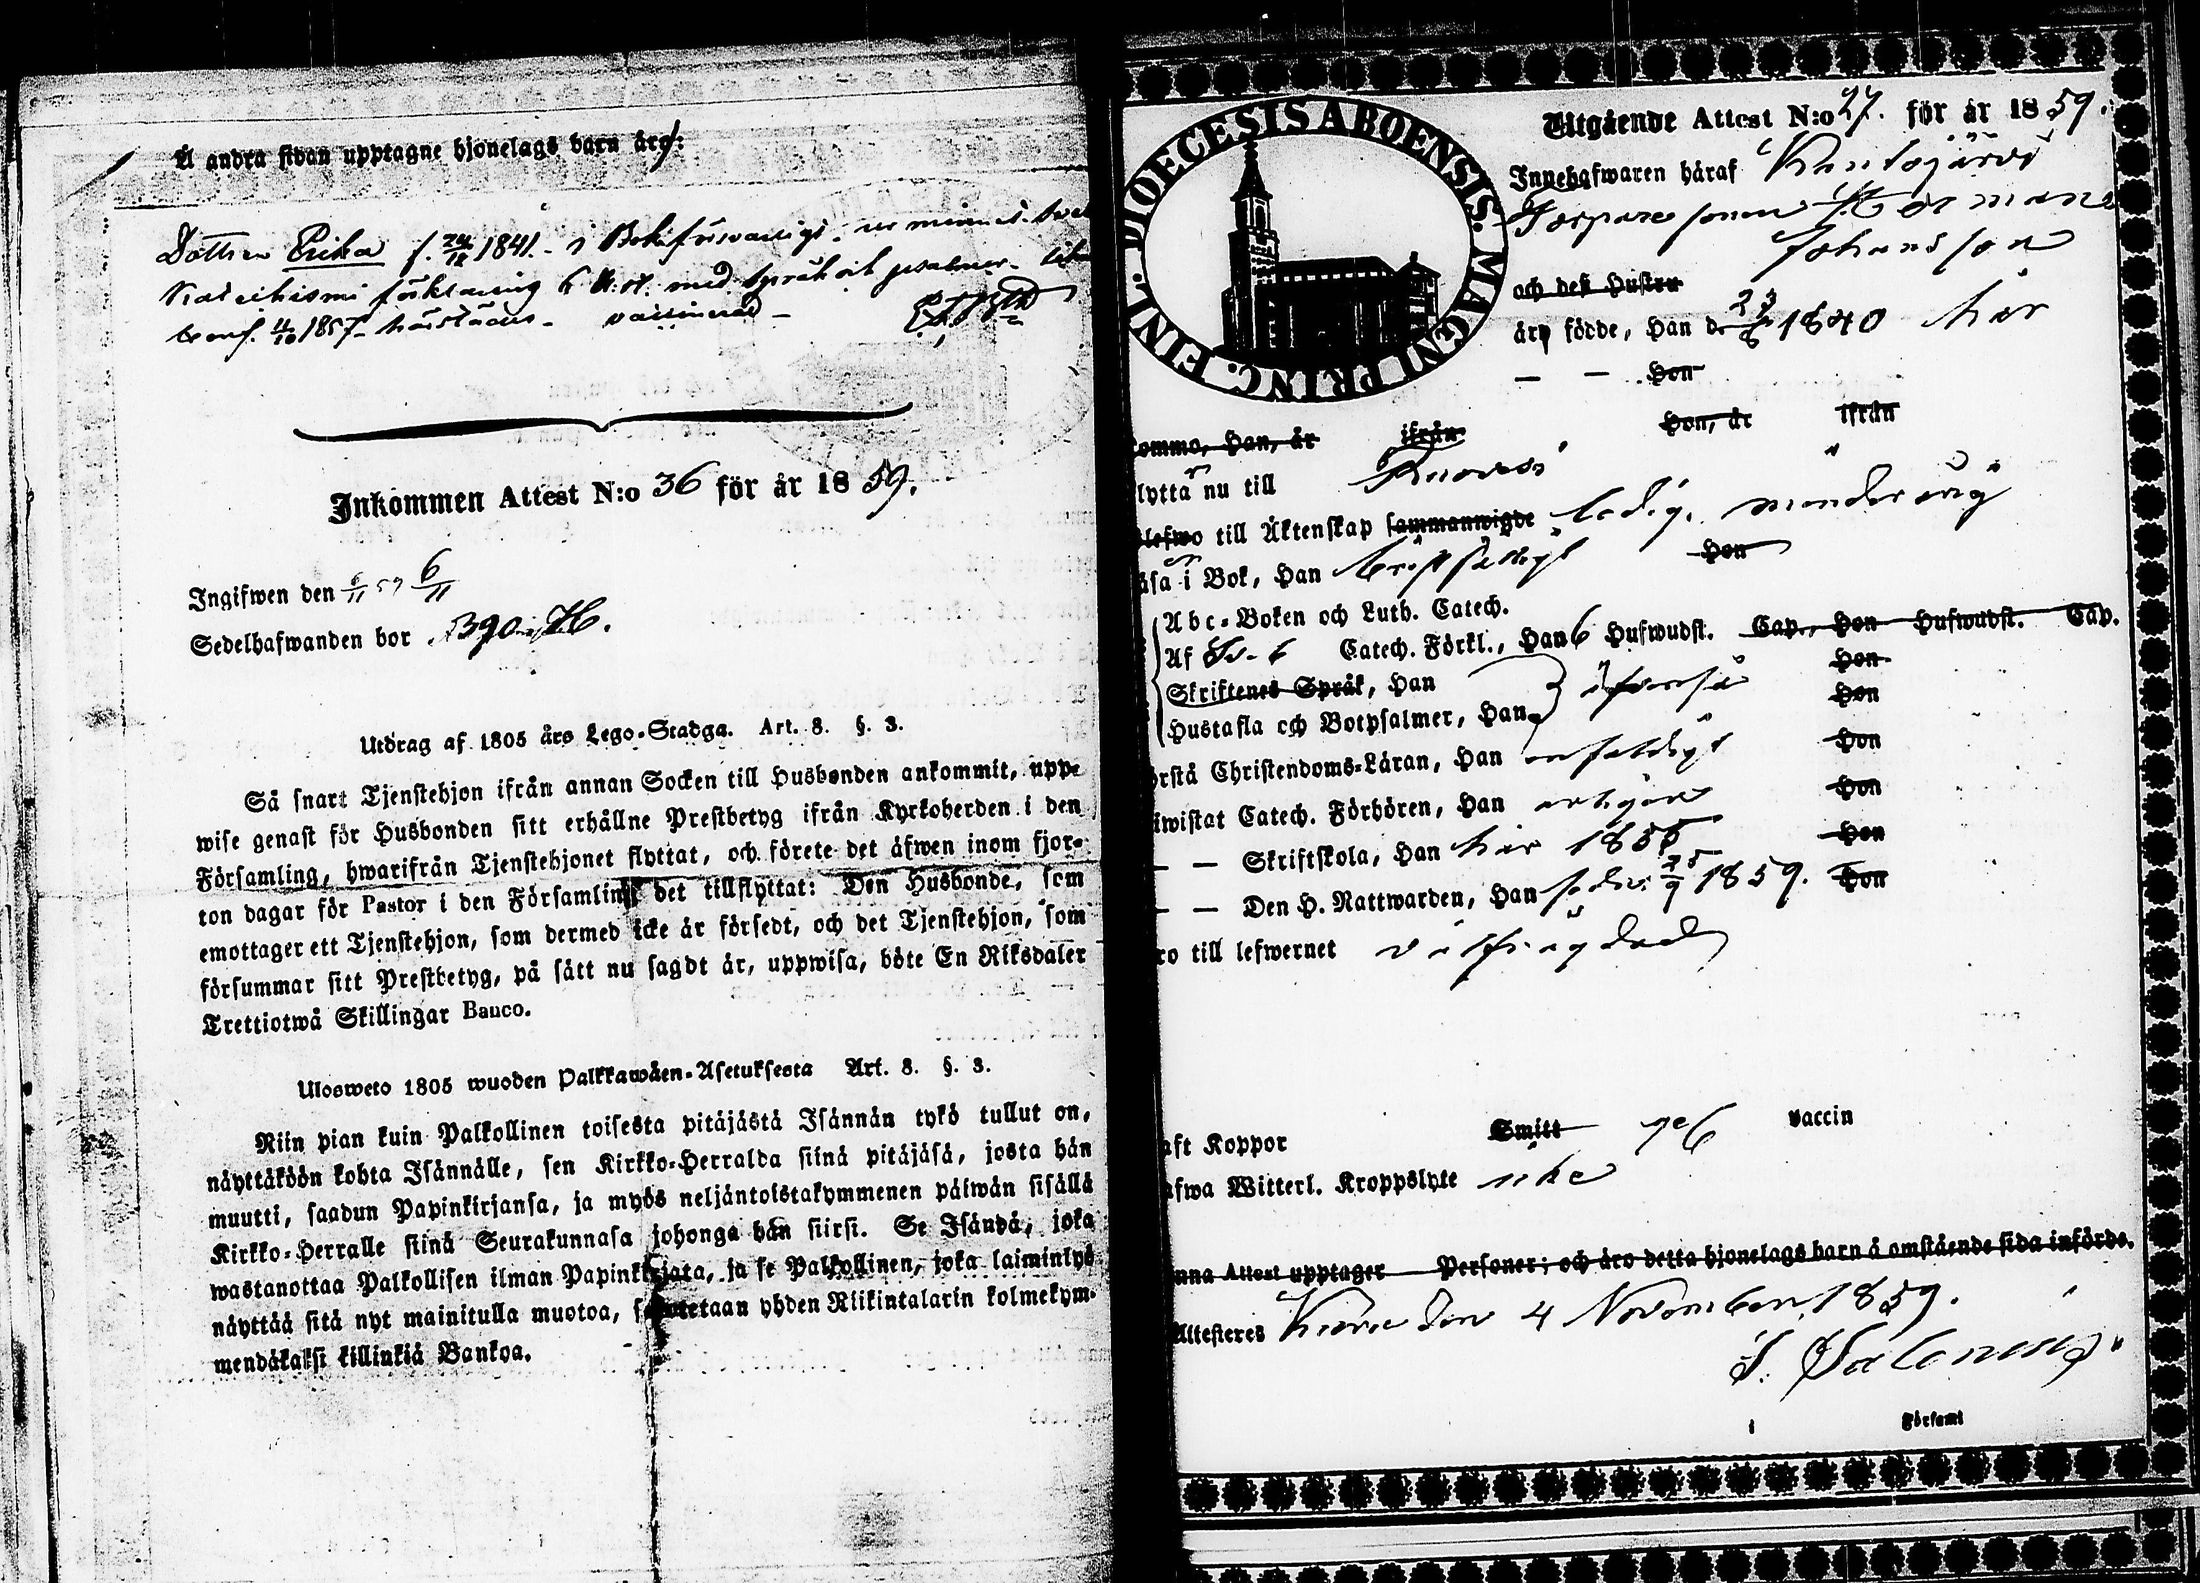 Å andra sidan upptagne hjonelags barn äro:
Dottren Erica f. 24/12 1841.
Katechismi förklaring 6 med språk och psalmer
conf. 1857 härstädes vaccinerad
Inkommen Attest N:o 36 för år 1859.
Ingifwen den 6/11 59 6/11
Sedelhafwanden bor
Utdrag af 1805 års Lego-Stadga. Art. 8. §. 3.
Så snart Tjenstehjon ifrån annan Socken till Husbonden ankommit, upp-
wise genast för Husbonden sitt erhållne Prestbetyg ifrån Kyrkoherden i den
Församling, hwarifrån Tjenstehjonet flyttat, och förete det äfwen inom fjor-
ton dagar för Pastor i den Församling det tillflyttat: Den Husbonde, som
emottager ett Tjenstehjon, som dermed icke är försedt, och det Tjenstehjon, som
försummar sitt Prestbetyg, på sätt nu sagdt är, uppwisa, böte En Riksdaler
Trettiotwå Skillingar Banco.
Ulosweto 1805 wuoden Palkkawäen-Asetuksesta Art. 8. §. 3.
Niin pian kuin Palkollinen toisesta pitäjästä Isännän tykö tullut on,
näyttäköön kohta Isännälle, sen Kirkko-Herralda siinä pitäjäsä, josta hän
muutti, saadun Papinkirjansa, ja myös neljäntoistakymmenen päiwän sisällä
Kirkko-Herralle siinä Seurakunnasa johonga hän siirsi. Se Isändä, joka
wastanottaa Palkollisen ilman Papinkirjata, ja se Palkollinen, joka laiminlyö
näyttää sitä nyt mainitulla muotoa, sakotetaan yhden Riikintalarin kolmekym-
mendäkaksi killinkiä Bankoa.
FINL. DIOECESIS ABOENSIS. MAGNI PRINC.
Utgående Attest N:o 27. för år 1859.
Innehafwaren häraf Kantojärvi
Torpare sonen Herman
Johansson
och dess Hustru
äro födde, Han d. 23/6 1840 här
— — Hon
komma, Han, år ifrån Hon, år ifrån
flytta nu till Ruovesi
till Äktenskap sammanwigde ledig, minderårig
läsa i Bok, Han försvarligt Hon
Abc-Boken och Luth. Catech.
Af Sv. 6 Catech. Förkl., Han 6 Hufwudst. Cap., Hon Hufwudst. Cap.
Skriftenes Språk, Han Hon
Hustafla och Botpsalmer, Han Hon
förstå Christendoms-Läran, Han enfaldigt Hon
biwistat Catech. Förhören, Han Hon
— — Skriftskola, Han här 1855 Hon
— — Den H. Nattwarden, Han sedn. 25/9 1859. Hon
äro till lefwernet välfrägdad
haft Koppor Smitt vaccin
hafwa Witterl. Kroppslyte icke
denna Attest upptager Personer; och äro detta hjonelags barn å omstående sida införde.
Attesteres den 4 November 1859.
i Församl